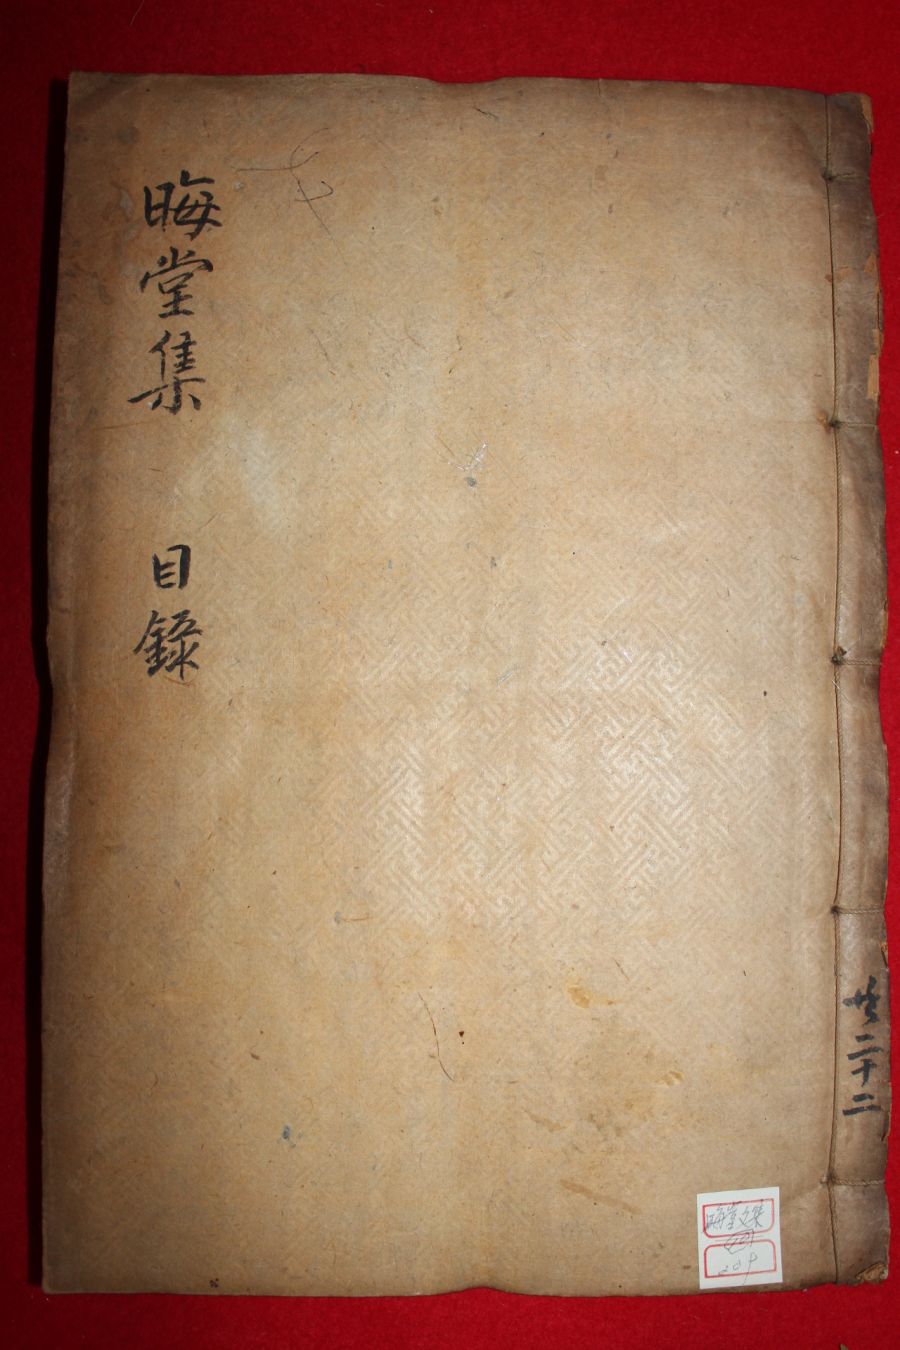 晦堂集 目錄
共二十二
晦堂文集
20p